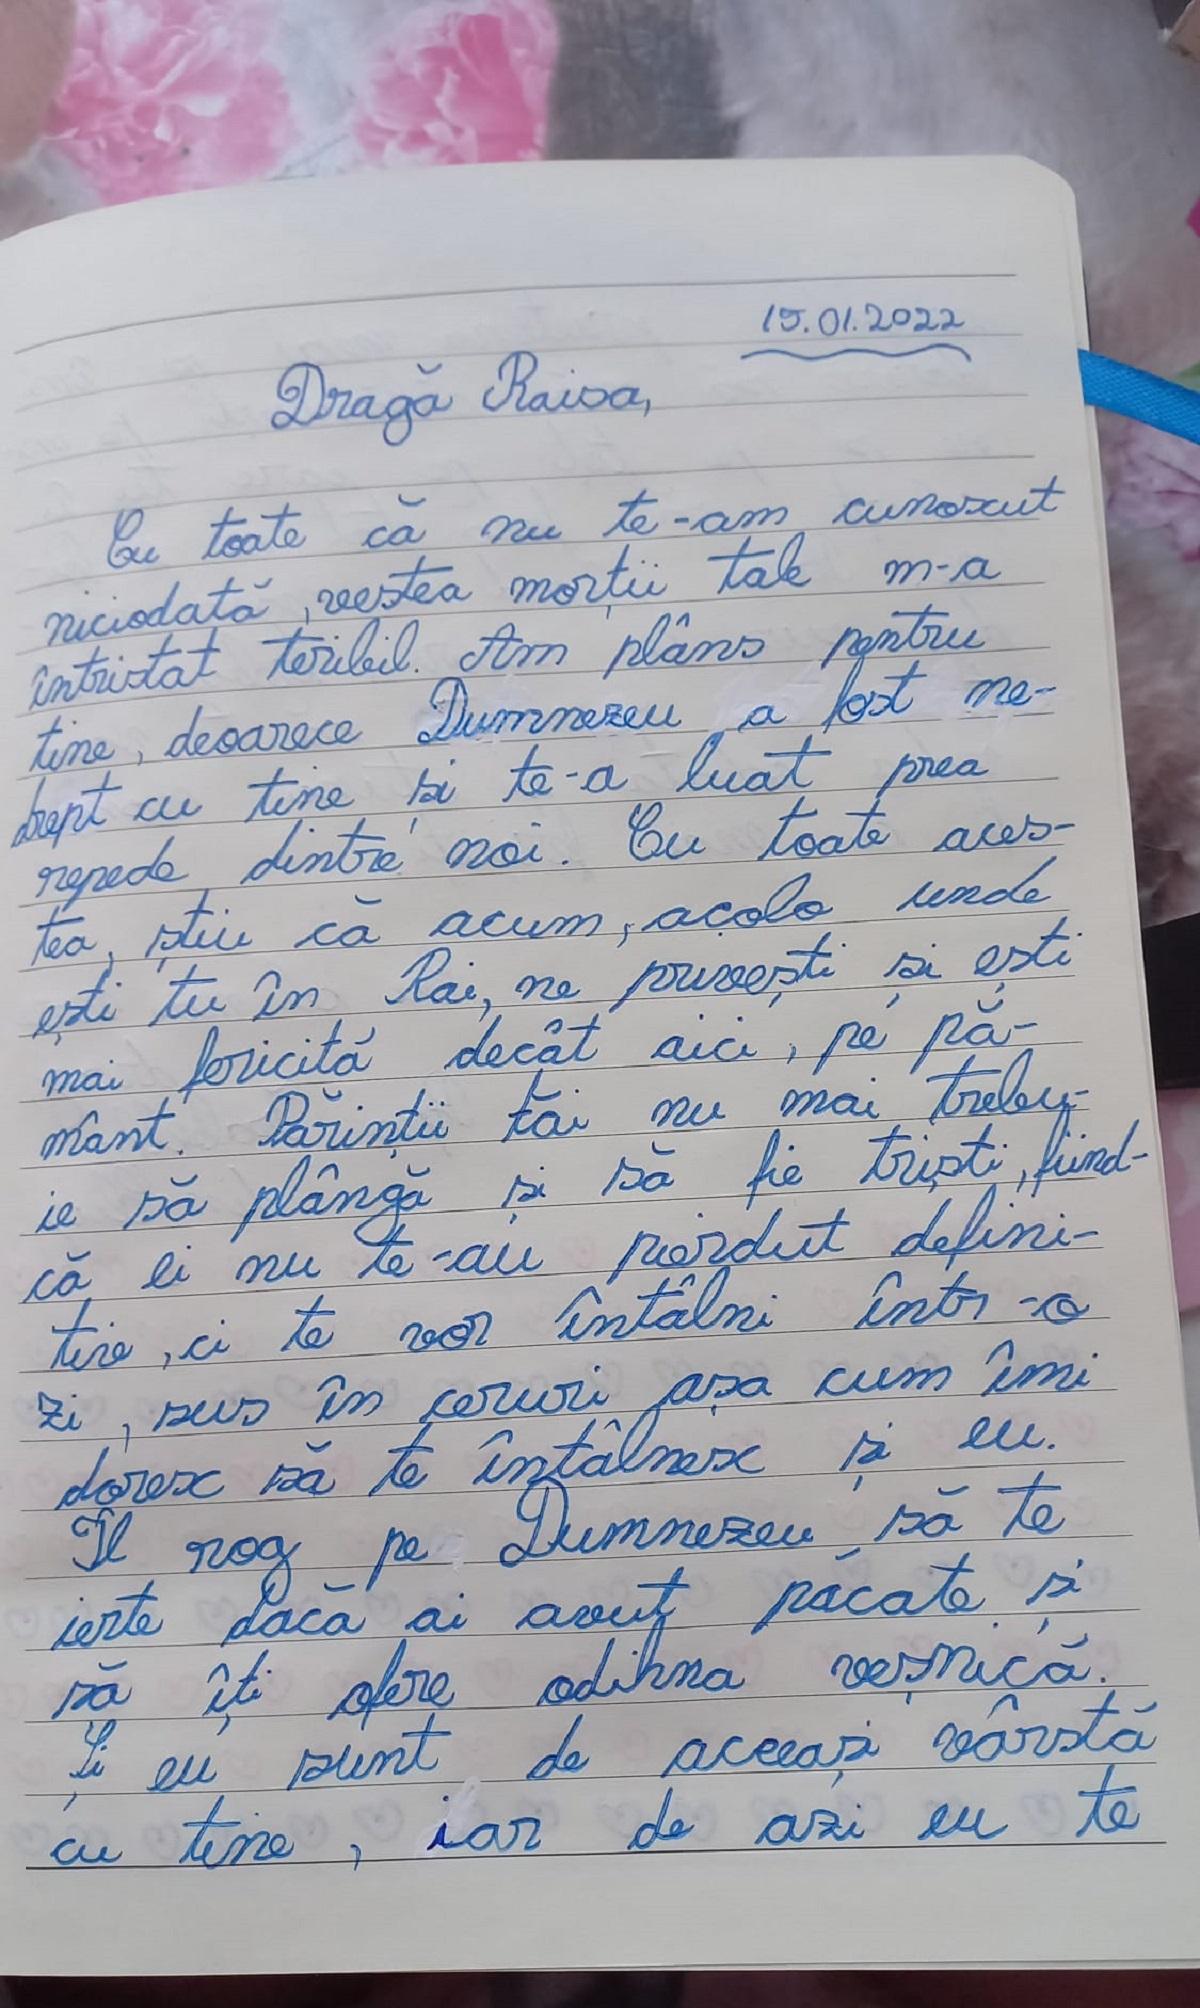 15.01.2022
Dragă Raisa,
Cu toate că nu te-am cunoscut
niciodată, vestea morții tale m-a
întristat teribil. Am plâns pentru
tine, deoarece Dumnezeu a fost ne-
drept cu tine și te-a luat prea
repede dintre noi. Cu toate aces-
tea, știu că acum, acolo unde
ești tu în Rai, ne privești și ești
mai fericită decât aici, pe pă-
mânt. Părinții tăi nu mai trebu-
ie să plângă și să fie triști, fiind-
că ei nu te-au pierdut defini-
tiv, ci te vor întâlni într-o
zi, sus în ceruri așa cum îmi
doresc să te întâlnesc și eu.
Îl rog pe Dumnezeu să te
ierte dacă ai avut păcate și
să îți ofere odihna veșnică.
Și eu sunt de aceeași vârstă
cu tine, iar de azi eu te